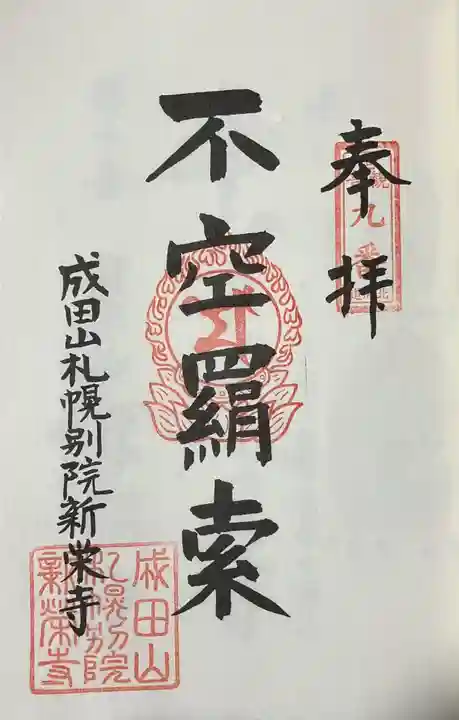 奉拝
九番
不空羂索
成田山札幌別院新栄寺
成田山
札幌別院
新榮寺